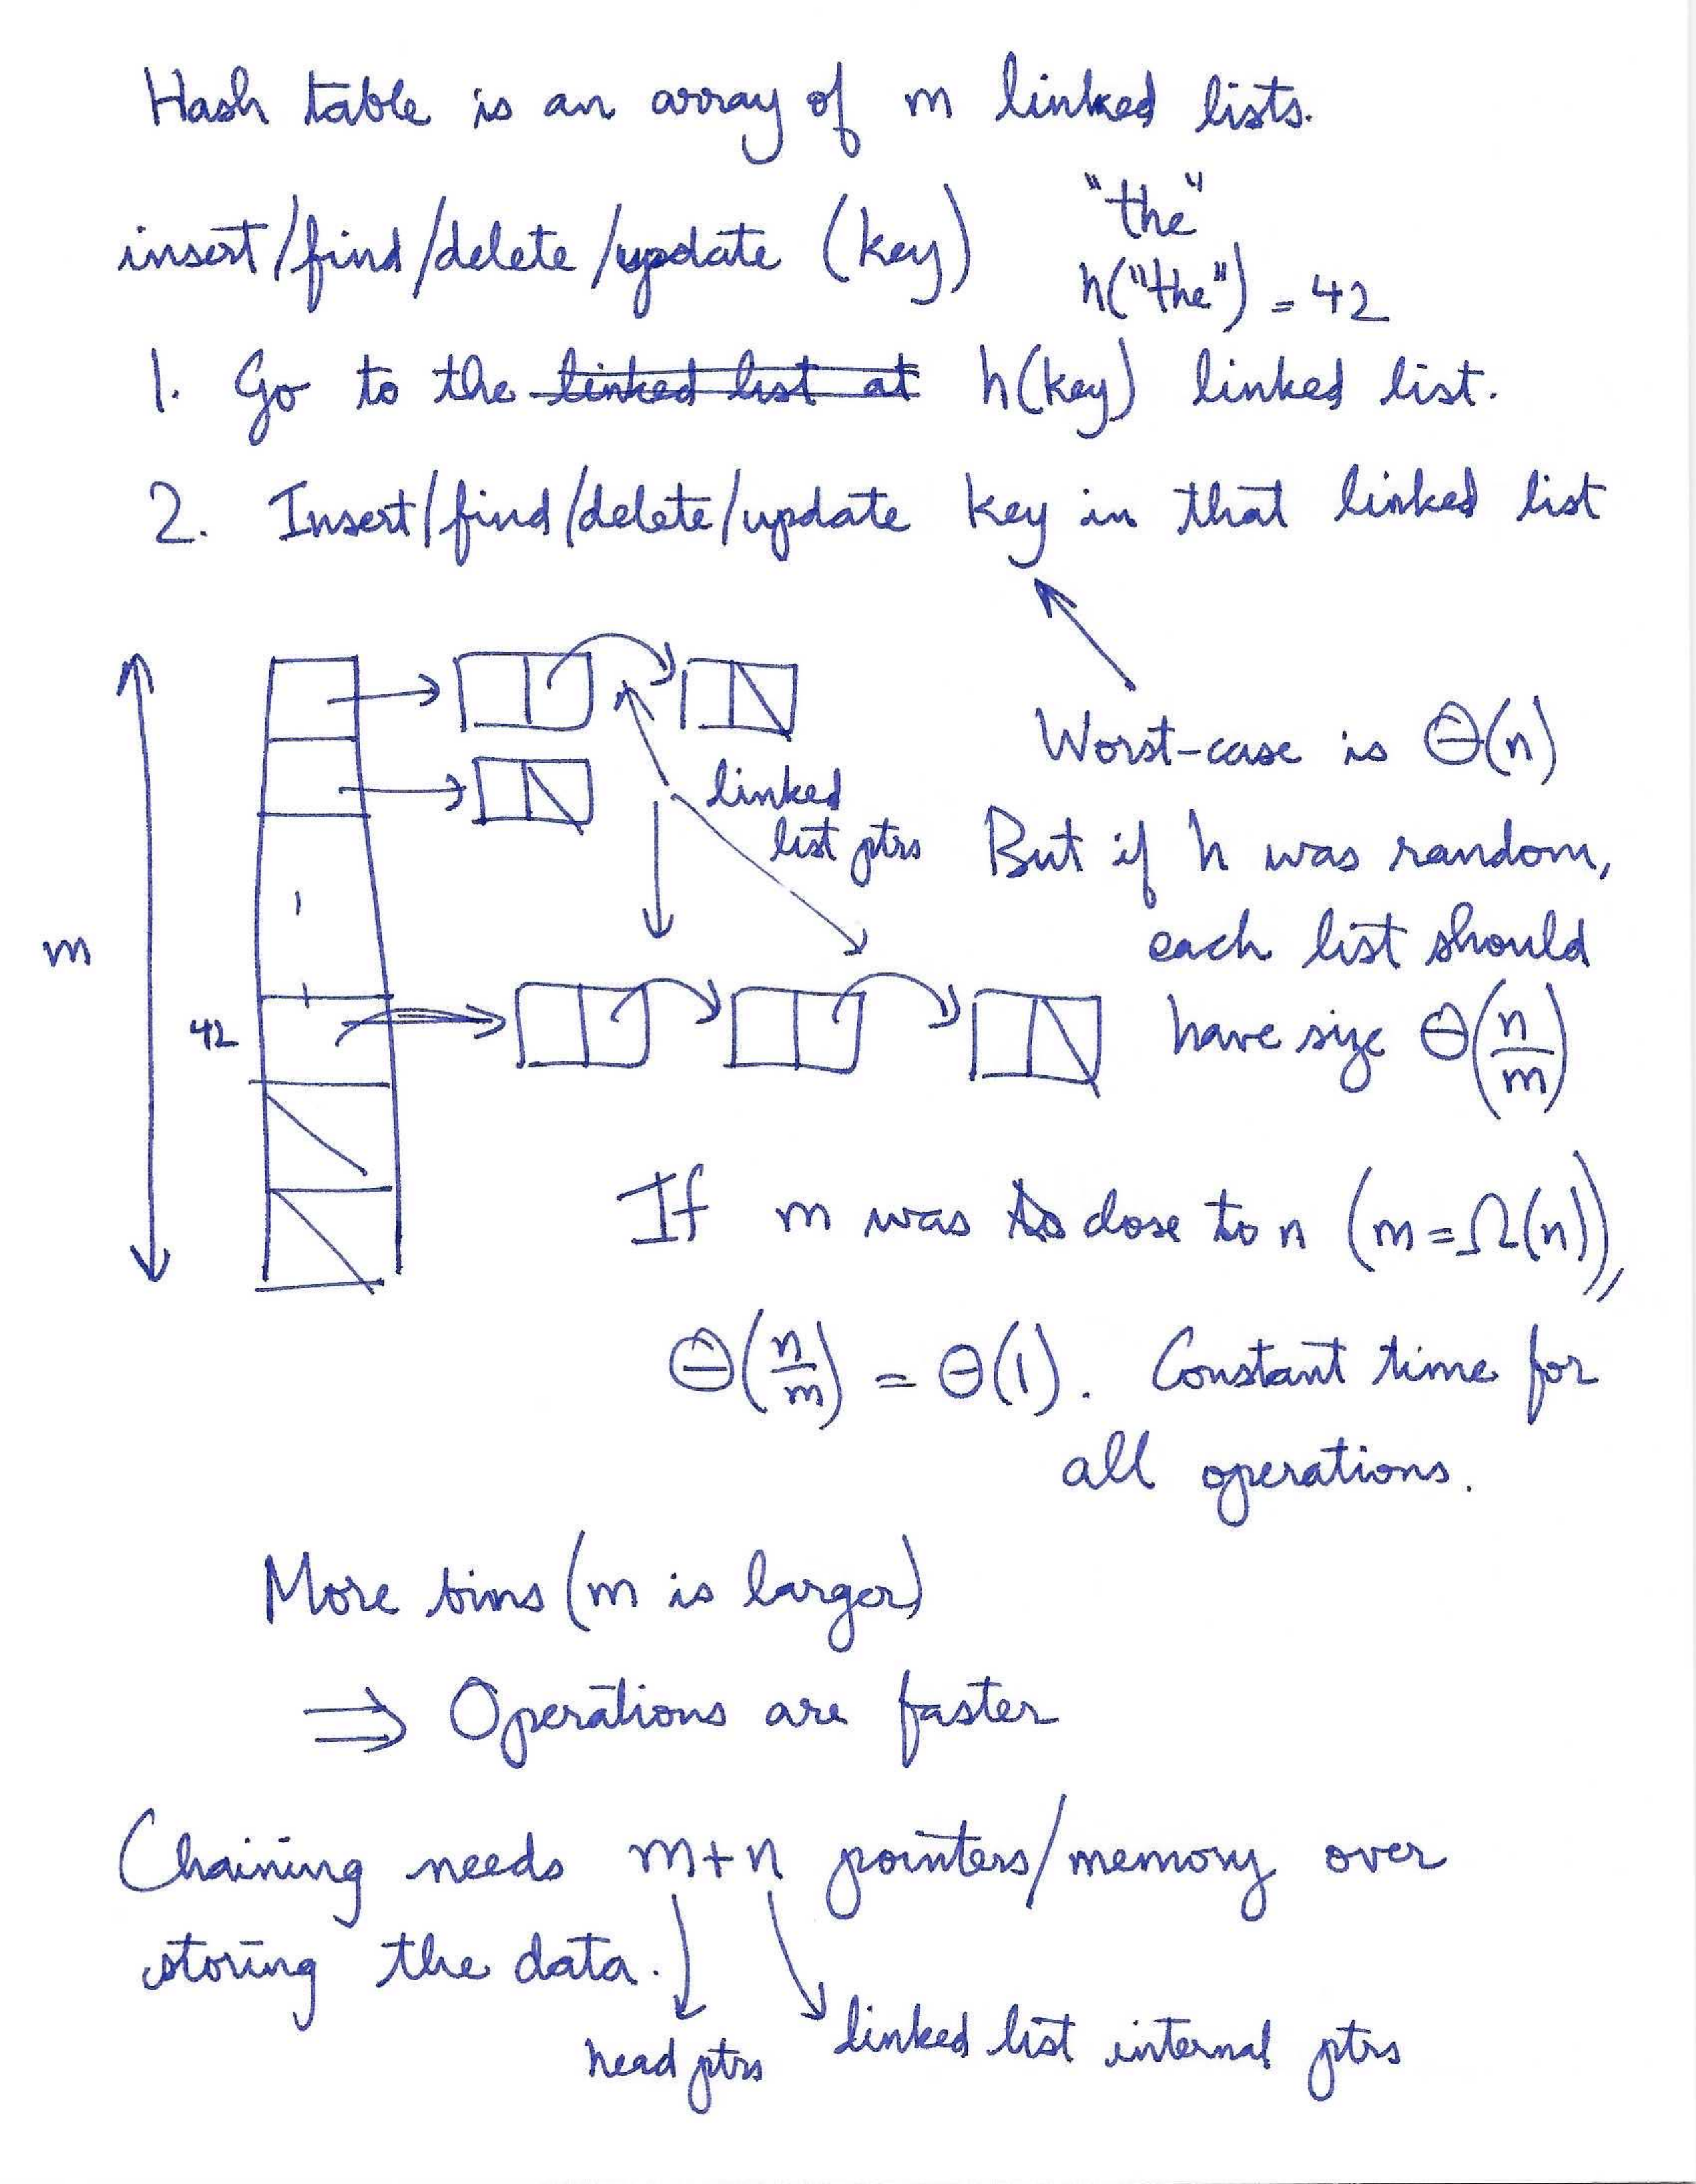 Hash table is an array of m linked lists.
"the"
insert/find/delete/update (key)
h("the") = 42
1. Go to the ~~linked list at~~ h(key) linked list.
2. Insert/find/delete/update key in that linked list
Worst-case is Θ(n)
linked
list ptrs
But if h was random,
each list should
m
42
have size Θ(n/m)
If m was close to n (m=Ω(n)),
Θ(n/m) = Θ(1). Constant time for
all operations.
More bins (m is larger)
⇒ Operations are faster
Chaining needs m+n pointers/memory over
storing the data.
head ptrs
linked list internal ptrs